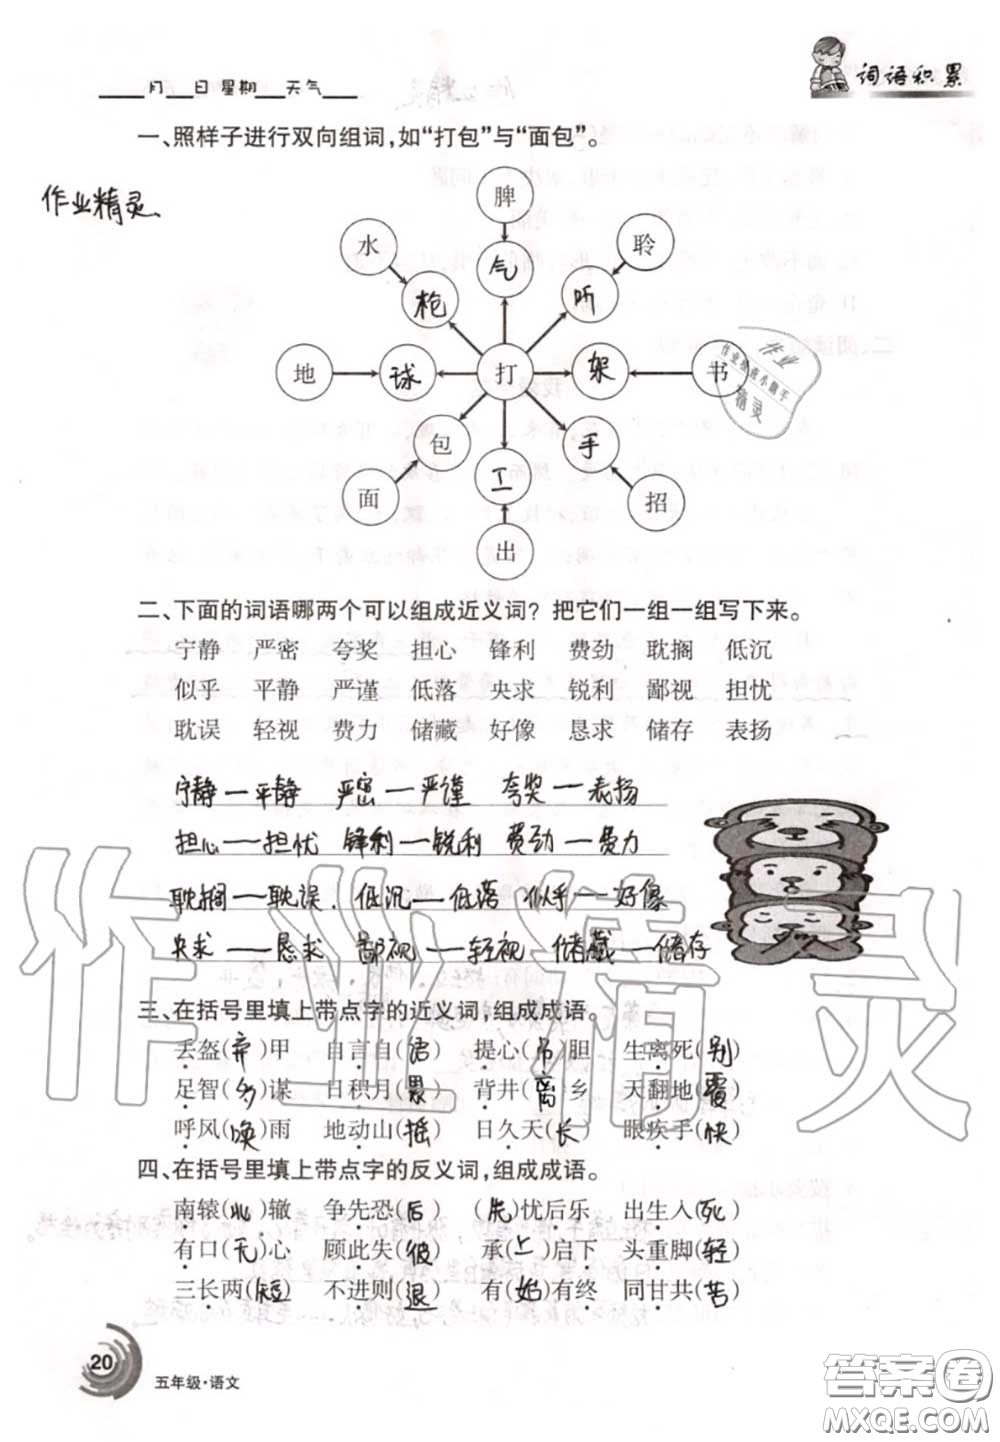 词语积累
____月__日星期__天气____
一、照样子进行双向组词，如“打包”与“面包”。
作业精灵
脾
水 聆
气
枪 听
地 球 打 架 书
包 手
面 工 招
出
二、下面的词语哪两个可以组成近义词？把它们一组一组写下来。
宁静 严密 夸奖 担心 锋利 费劲 耽搁 低沉
似乎 平静 严谨 低落 央求 锐利 鄙视 担忧
耽误 轻视 费力 储藏 好像 恳求 储存 表扬
宁静——平静 严密——严谨 夸奖——表扬
担心——担忧 锋利——锐利 费劲——费力
耽搁——耽误 低沉——低落 似乎——好像
央求——恳求 鄙视——轻视 储藏——储存
三、在括号里填上带点字的近义词，组成成语。
丢盔(弃)甲 自言自(语) 提心(吊)胆 生离死(别)
足智(多)谋 日积月(累) 背井(离)乡 天翻地(覆)
呼风(唤)雨 地动山(摇) 日久天(长) 眼疾手(快)
四、在括号里填上带点字的反义词，组成成语。
南辕(北)辙 争先恐(后) (先)忧后乐 出生入(死)
有口(无)心 顾此失(彼) 承(上)启下 头重脚(轻)
三长两(短) 不进则(退) 有(始)有终 同甘共(苦)
20
五年级·语文
作业精灵
答案圈
MXQE.COM